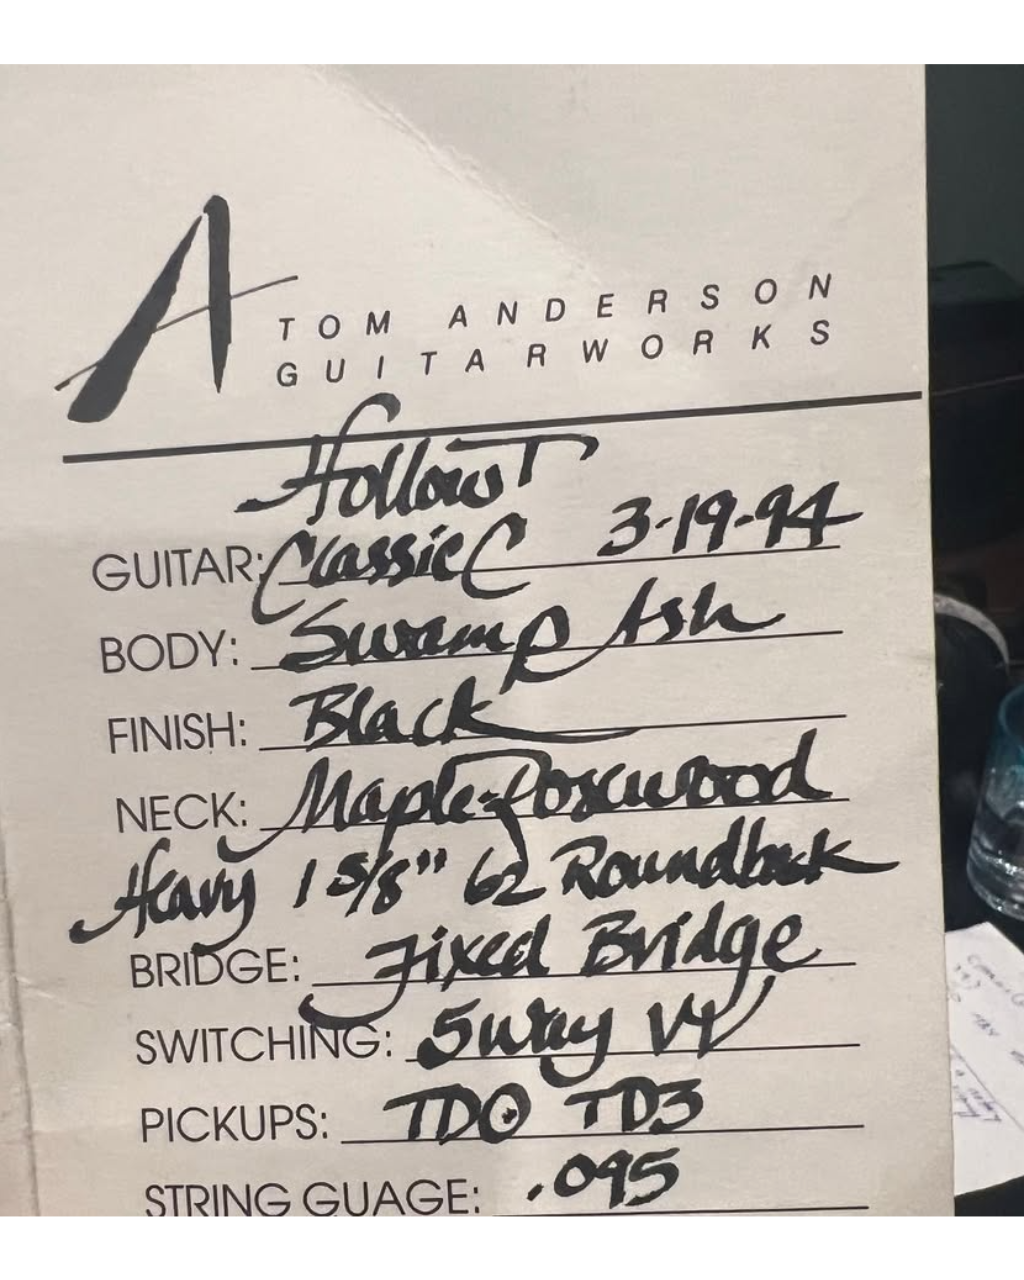 A
TOM ANDERSON
GUITARWORKS
Hollow T
GUITAR: Classic C 3-19-94
BODY: Swamp Ash
FINISH: Black
NECK: Maple-Rosewood
Heavy 1 5/8" 62 Roundback
BRIDGE: Fixed Bridge
SWITCHING: 5way V4
PICKUPS: TDO TD3
STRING GUAGE: .095